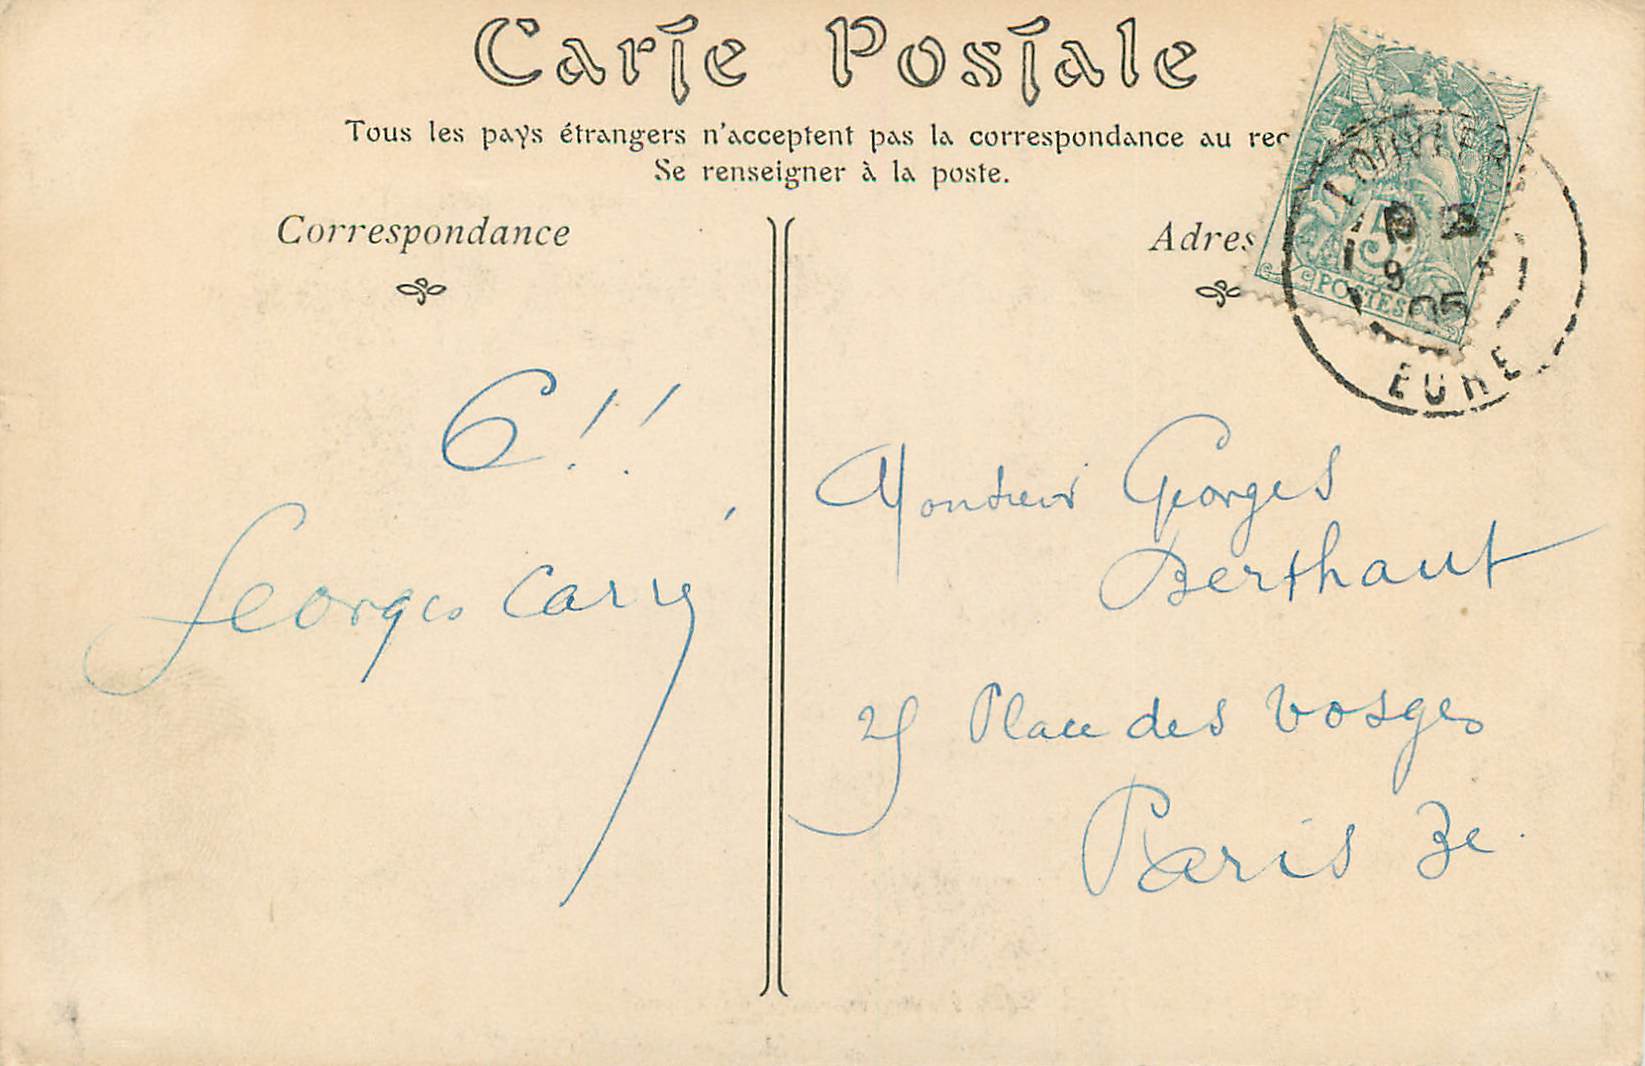 Carte Postale
Tous les pays étrangers n'acceptent pas la correspondance au rec
Se renseigner à la poste.
Correspondance
Adres
5
POSTES
9
05
EURE
6!!
Georges Carré
Monsieur Georges
Berthaut
25 Place des Vosges
Paris 3e